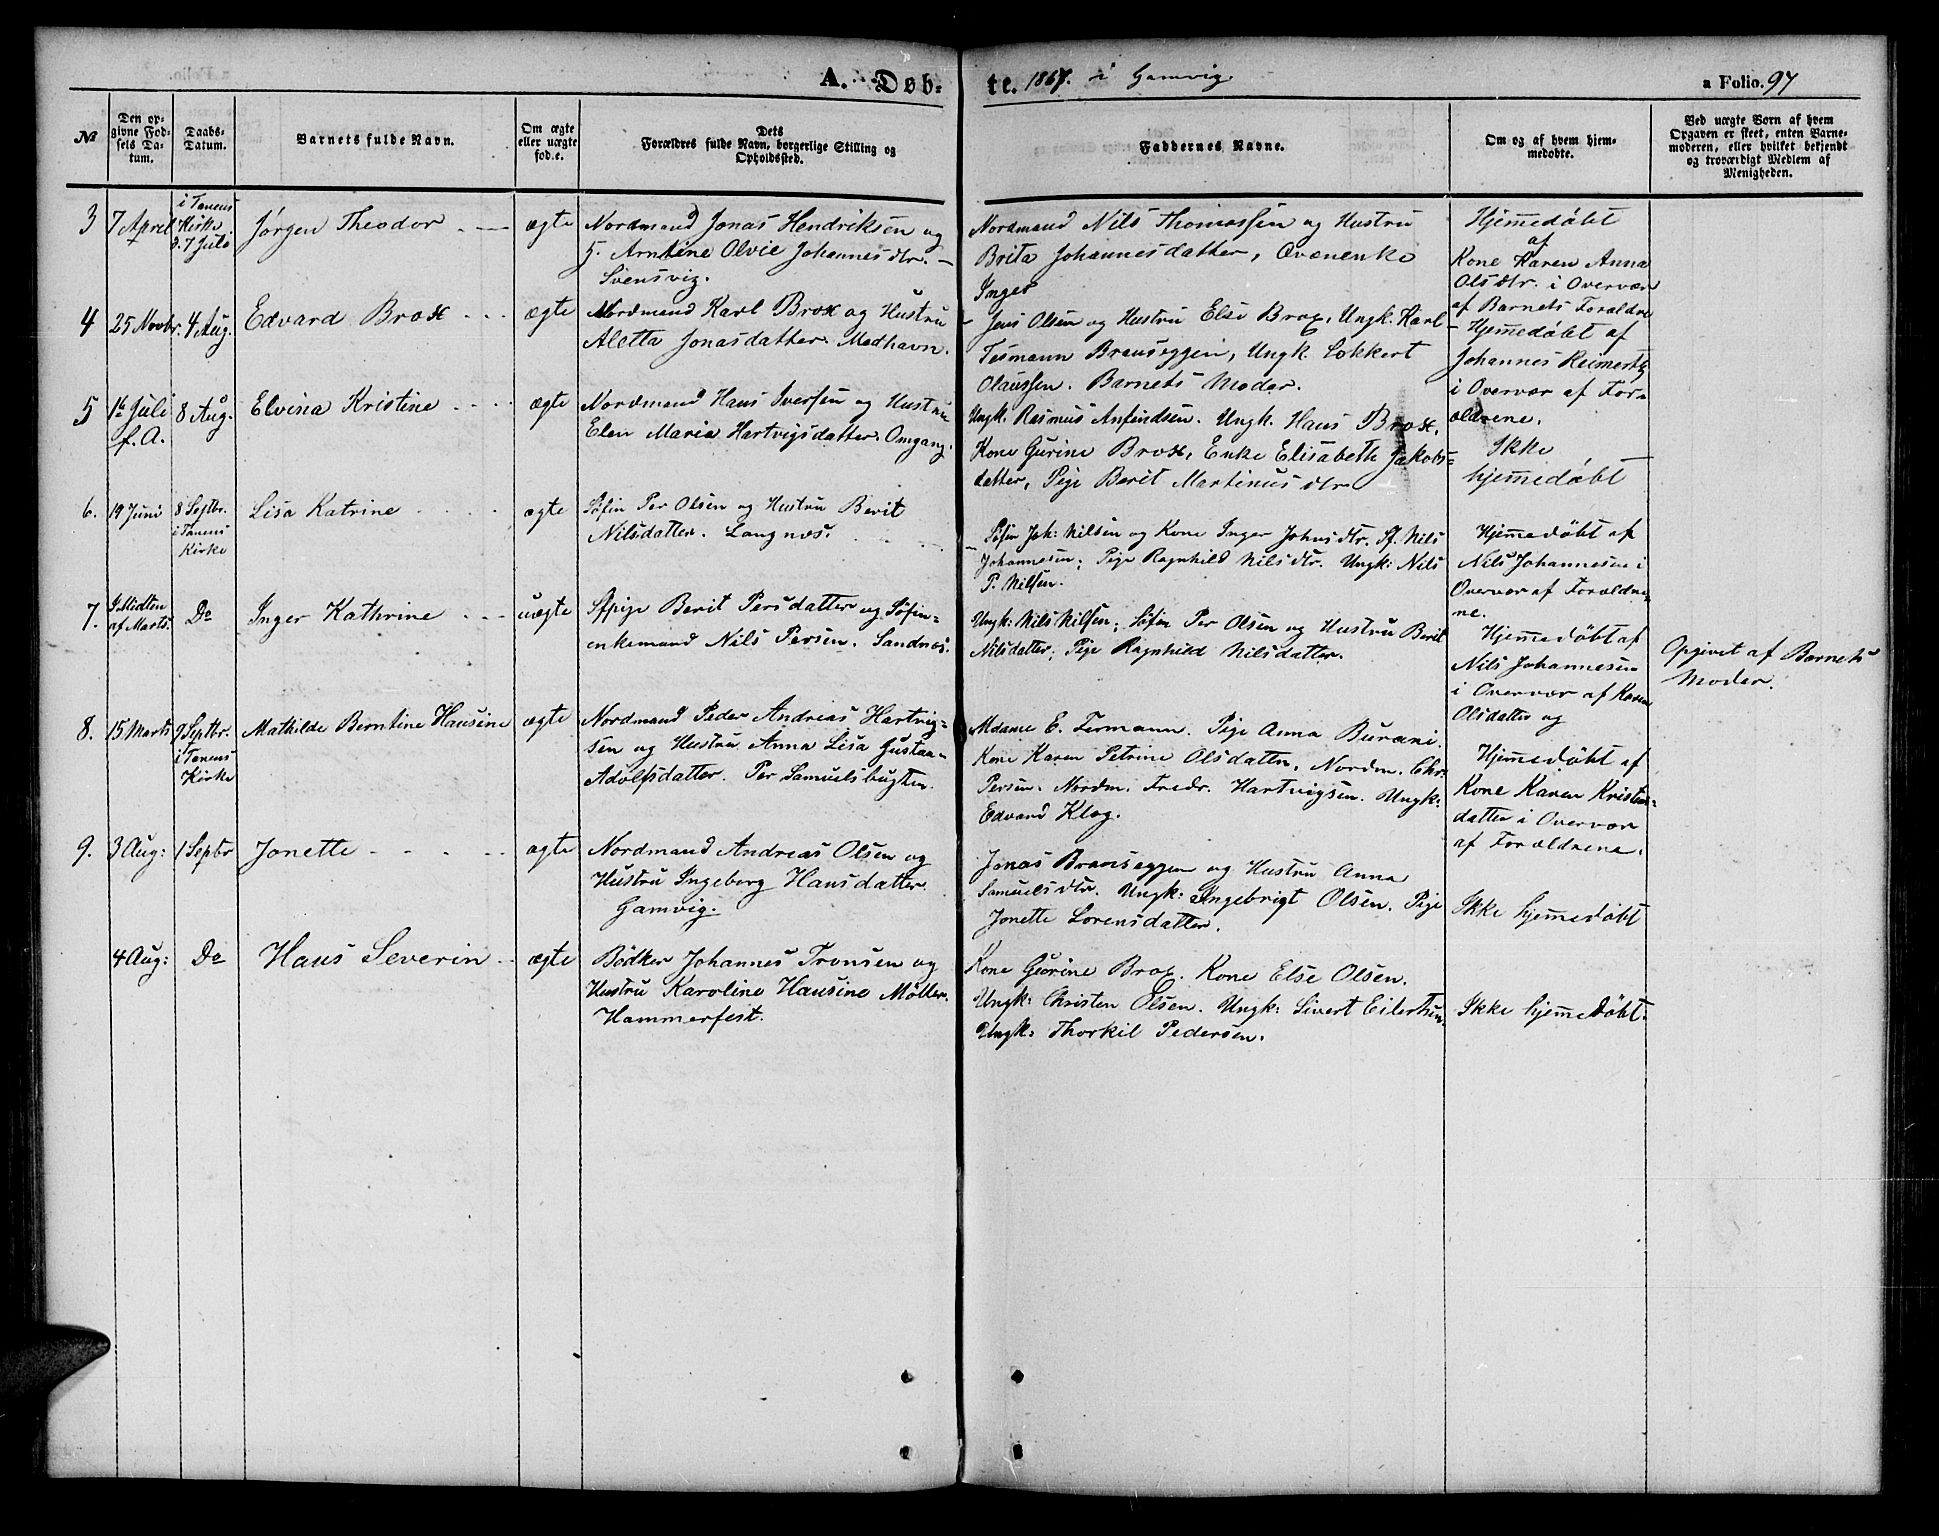 A. Døb-
te. 1867. i Gamvig.
a Folio. 97
№
Den op-
givne Fød-
sels Da-
tum.
Daabs-
Datum.
Barnets fulde Navn.
Om ægte
eller uægte
fød.e.
Dets
Forældres fulde Navn, borgerlige Stilling og
Opholdssted.
Faddernes Navne.
Om og af hvem hjem-
medøbte.
Ved uægte Børn af hvem
Opgaven er skeet, enten Barne-
moderen, eller hvilket bekjendt
og troværdigt Medlem af
Menigheden.
3
7 April
i Tanens
Kirke
d. 7 Juli
Jørgen Theodor
ægte
Nordmand Jonas Hendriksen og
H. Arntine Olvie Johannesdtr. -
Svensvig.
Nordmand Nils Thomassen og Hustru
Brita Johannesdatter, Qvænenke
Inger
Hjemmedøbt
af
Kone Karen Anna
Olsdtr. i Overvær
af Barnets Forældre
4
25 Novbr.
4 Aug.
Edvard Brox
ægte
Nordmand Karl Brox og Hustru
Aletta Jonasdatter. Medhavn.
- Jens Olsen og Hustru Else Brox, Ungk. Karl
Tesmann Brenseggen, Ungk. Lokkert
Olaussen. Barnets Moder.
- Hjemmedøbt af
Johannes Reimertz
i Overvær af For-
ældrene.
5
16 Juli
f. A.
8 Aug.
Elvina Kristine
ægte
Nordmand Hans Iversen og Hustru
Elen Maria Hartvigsdatter. Omgang.
Ungk. Rasmus Anfindsen. Ungk. Hans Brox.
Kone Gurine Brox, Enke Elisabeth Jakobs-
datter, Pige Berit Martinusdtr
Ikke
hjemmedøbt
6.
19 Juni
8 Septbr.
i Tanens
Kirke
Lisa Katrine
ægte
Søfin Per Olsen og Hustru Berit
Nilsdatter. Langnæs.
- Søfin Joh: Nilsen og Kone Inger Johnsdtr. Sf. Nils
Johannesen; Pige Ragnhild Nilsdtr. Ungk: Nils
P. Nilsen.
Hjemmedøbt af
Nils Johannesen i
Overvær af Forældre-
ne.
7.
I Midten
af Marts.
Do
Inger Kathrine
uægte
Sfpige Berit Persdatter og Søfin-
enkemand Nils Persen. Sandnæs.
Ungk: Nils Nilsen; Søfin Per Olsen og Hustru Berit
Nilsdatter; Pige Ragnhild Nilsdatter.
Hjemmedøbt af
Nils Johannesen
i Overvær af Karen
Olsdatter og
Opgivet af Barnets
Moder.
8.
15 Marts
9 Septbr.
i Tanens
Kirke
Mathilde Berntine Hansine
ægte
Nordmand Peder Andreas Hartvig-
sen og Hustru Anna Lisa Gustaa-
Adolfsdatter. Per Samuelsbugten.
Mdame E. Fermann. Pige Anna Burani.
Kone Karen Petrine Olsdatter. Nordm. Chr:
Persen. Nordm. Fredr. Hartvigsen. Ungk:
Edvard Klog.
Hjemmedøbt af
Kone Karen Kristens-
datter i Overvær
af Forældrene.
9.
3 Aug:
1 Sepbr
Jonette
ægte
Nordmand Andreas Olsen og
Hustru Ingeborg Hansdatter
Gamvig.
Jonas Brænseggen og Hustru Anna
Samuelsdtr. Ungk: Ingebrigt Olsen. Pige
Jonette Lorensdatter.
Ikke hjemmedøbt
4 Aug:
Do
Hans Severin
ægte
Bødker Johannes Tronsen og
Hustru Karoline Hansine Møller.
Hammerfest.
Kone Gurine Brox. Kone Else Olsen.
Ungk: Christen Olsen. Ungk: Sivert Eilertsen.
Ungk: Thorkil Pedersen.
Ikke hjemmedøbt.